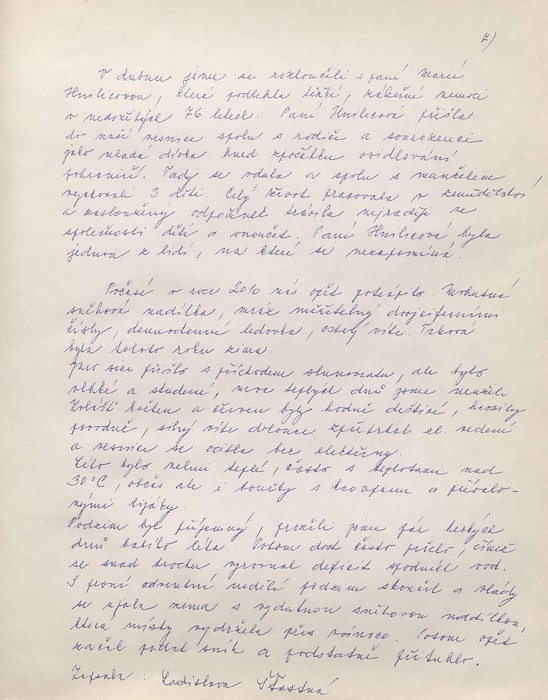 7)
V dubnu jsme se rozloučili s paní Marií
Hnilicovou, která podlehla těžké, zákeřné nemoci
v nedožitých 76 letech. Paní Hnilicová přišla
do naší vesnice spolu s rodiči a sourozenci
jako mladá dívka hned zpočátku osidlování
pohraničí. Tady se vdala a spolu s manželem
vychovali 3 děti. Celý život pracovala v zemědělství
a zasloužený odpočinek trávila nejraději ve
společnosti dětí a vnoučat. Paní Hnilicová byla
jednou z lidí, na které se nezapomíná.
Počasí v roce 2010 nás opět potrápilo. Mohutná
sněhová nadílka, mráz měřitelný dvojcifernými
čísly, dennodenní ledovka, ostrý vítr. Taková
byla tohoto roku zima.
Jaro sice přišlo s příchodem slunovratu, ale bylo
vlhké a studené, moc teplých dnů jsme neužili
Zvláště květen a červen byly hodně deštivé, hrozily
povodně, silný vítr dokonce zpřetrhal el. vedení
a vesnice se ocitla bez elektřiny.
Léto bylo velmi teplé, často s teplotami nad
30°C, občas ale i bouřky s kroupami a přívalo-
vými lijáky.
Podzim byl příjemný, prožili jsme pár hezkých
dnů babího léta. Potom dost často pršelo, čímž
se snad trochu vyrovnal deficit spodních vod.
S první adventní nedělí podzim skončil a vlády
se ujala zima s vydatnou sněhovou nadílkou,
která místy vydržela přes vánoce. Potom opět
začal padat sníh a podstatně přituhlo.
Zapsala: Ladislava Šťastná